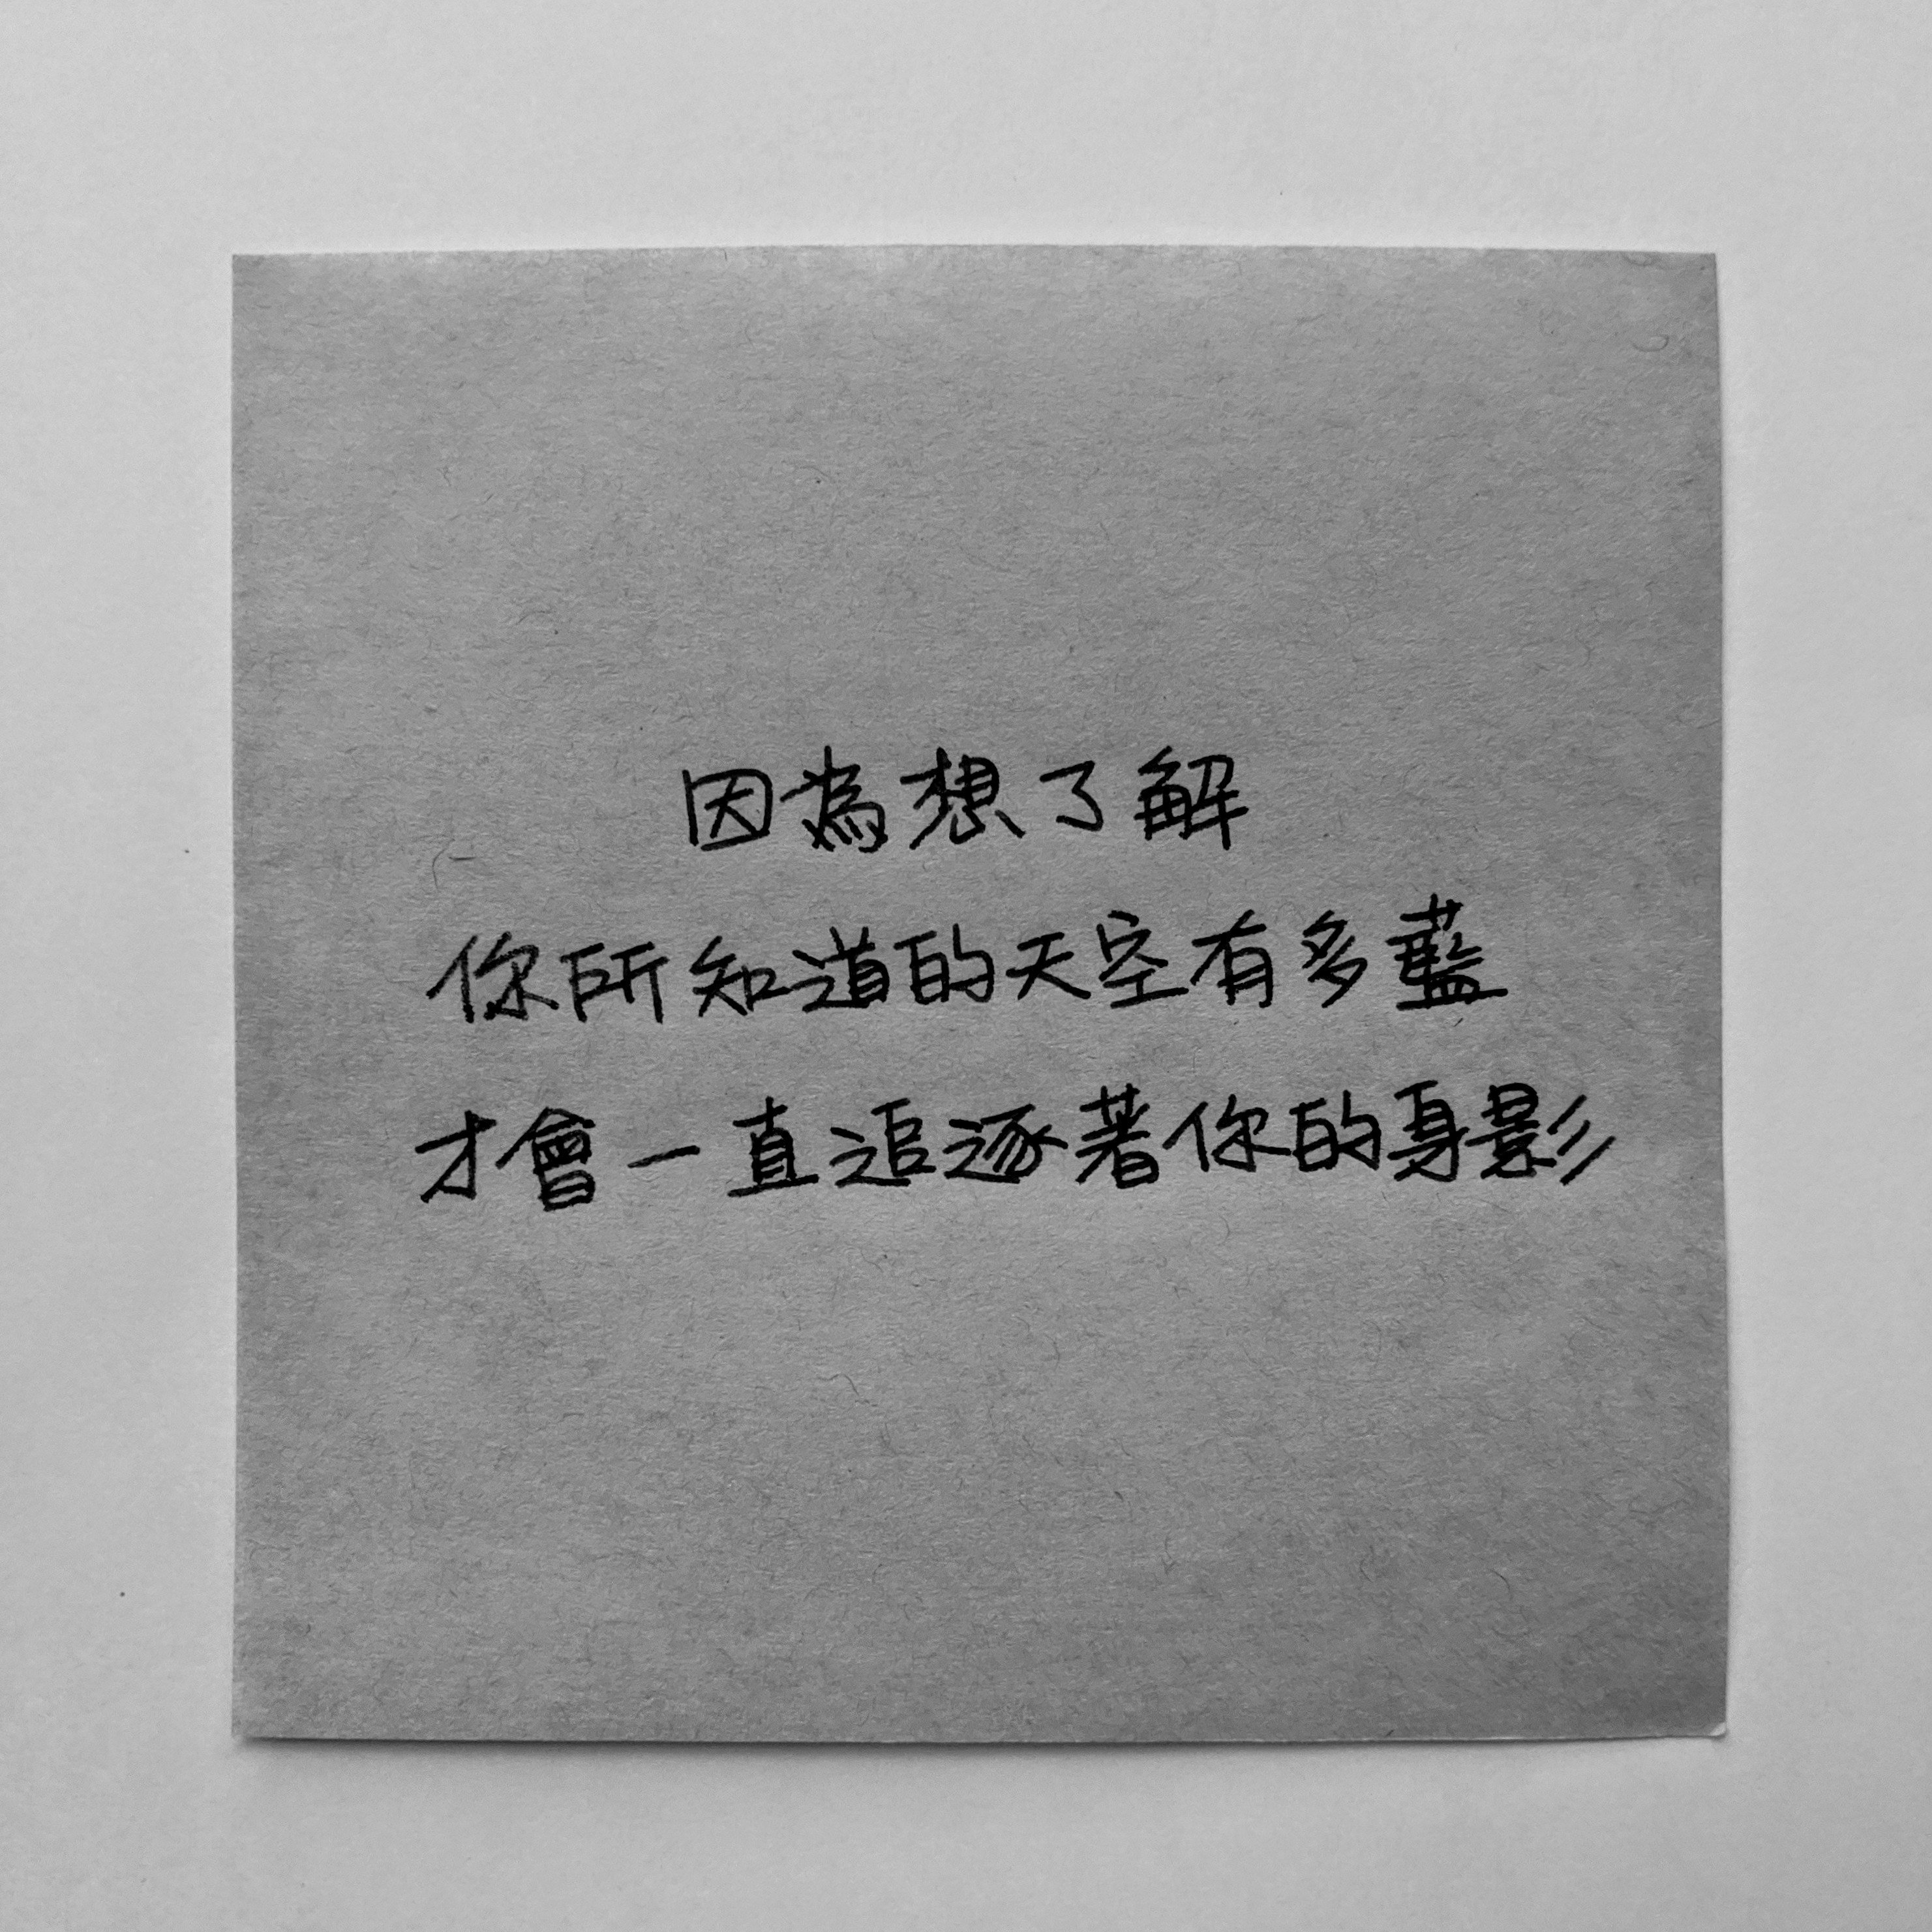 因為想了解
你所知道的天空有多藍
才會一直追逐著你的身影